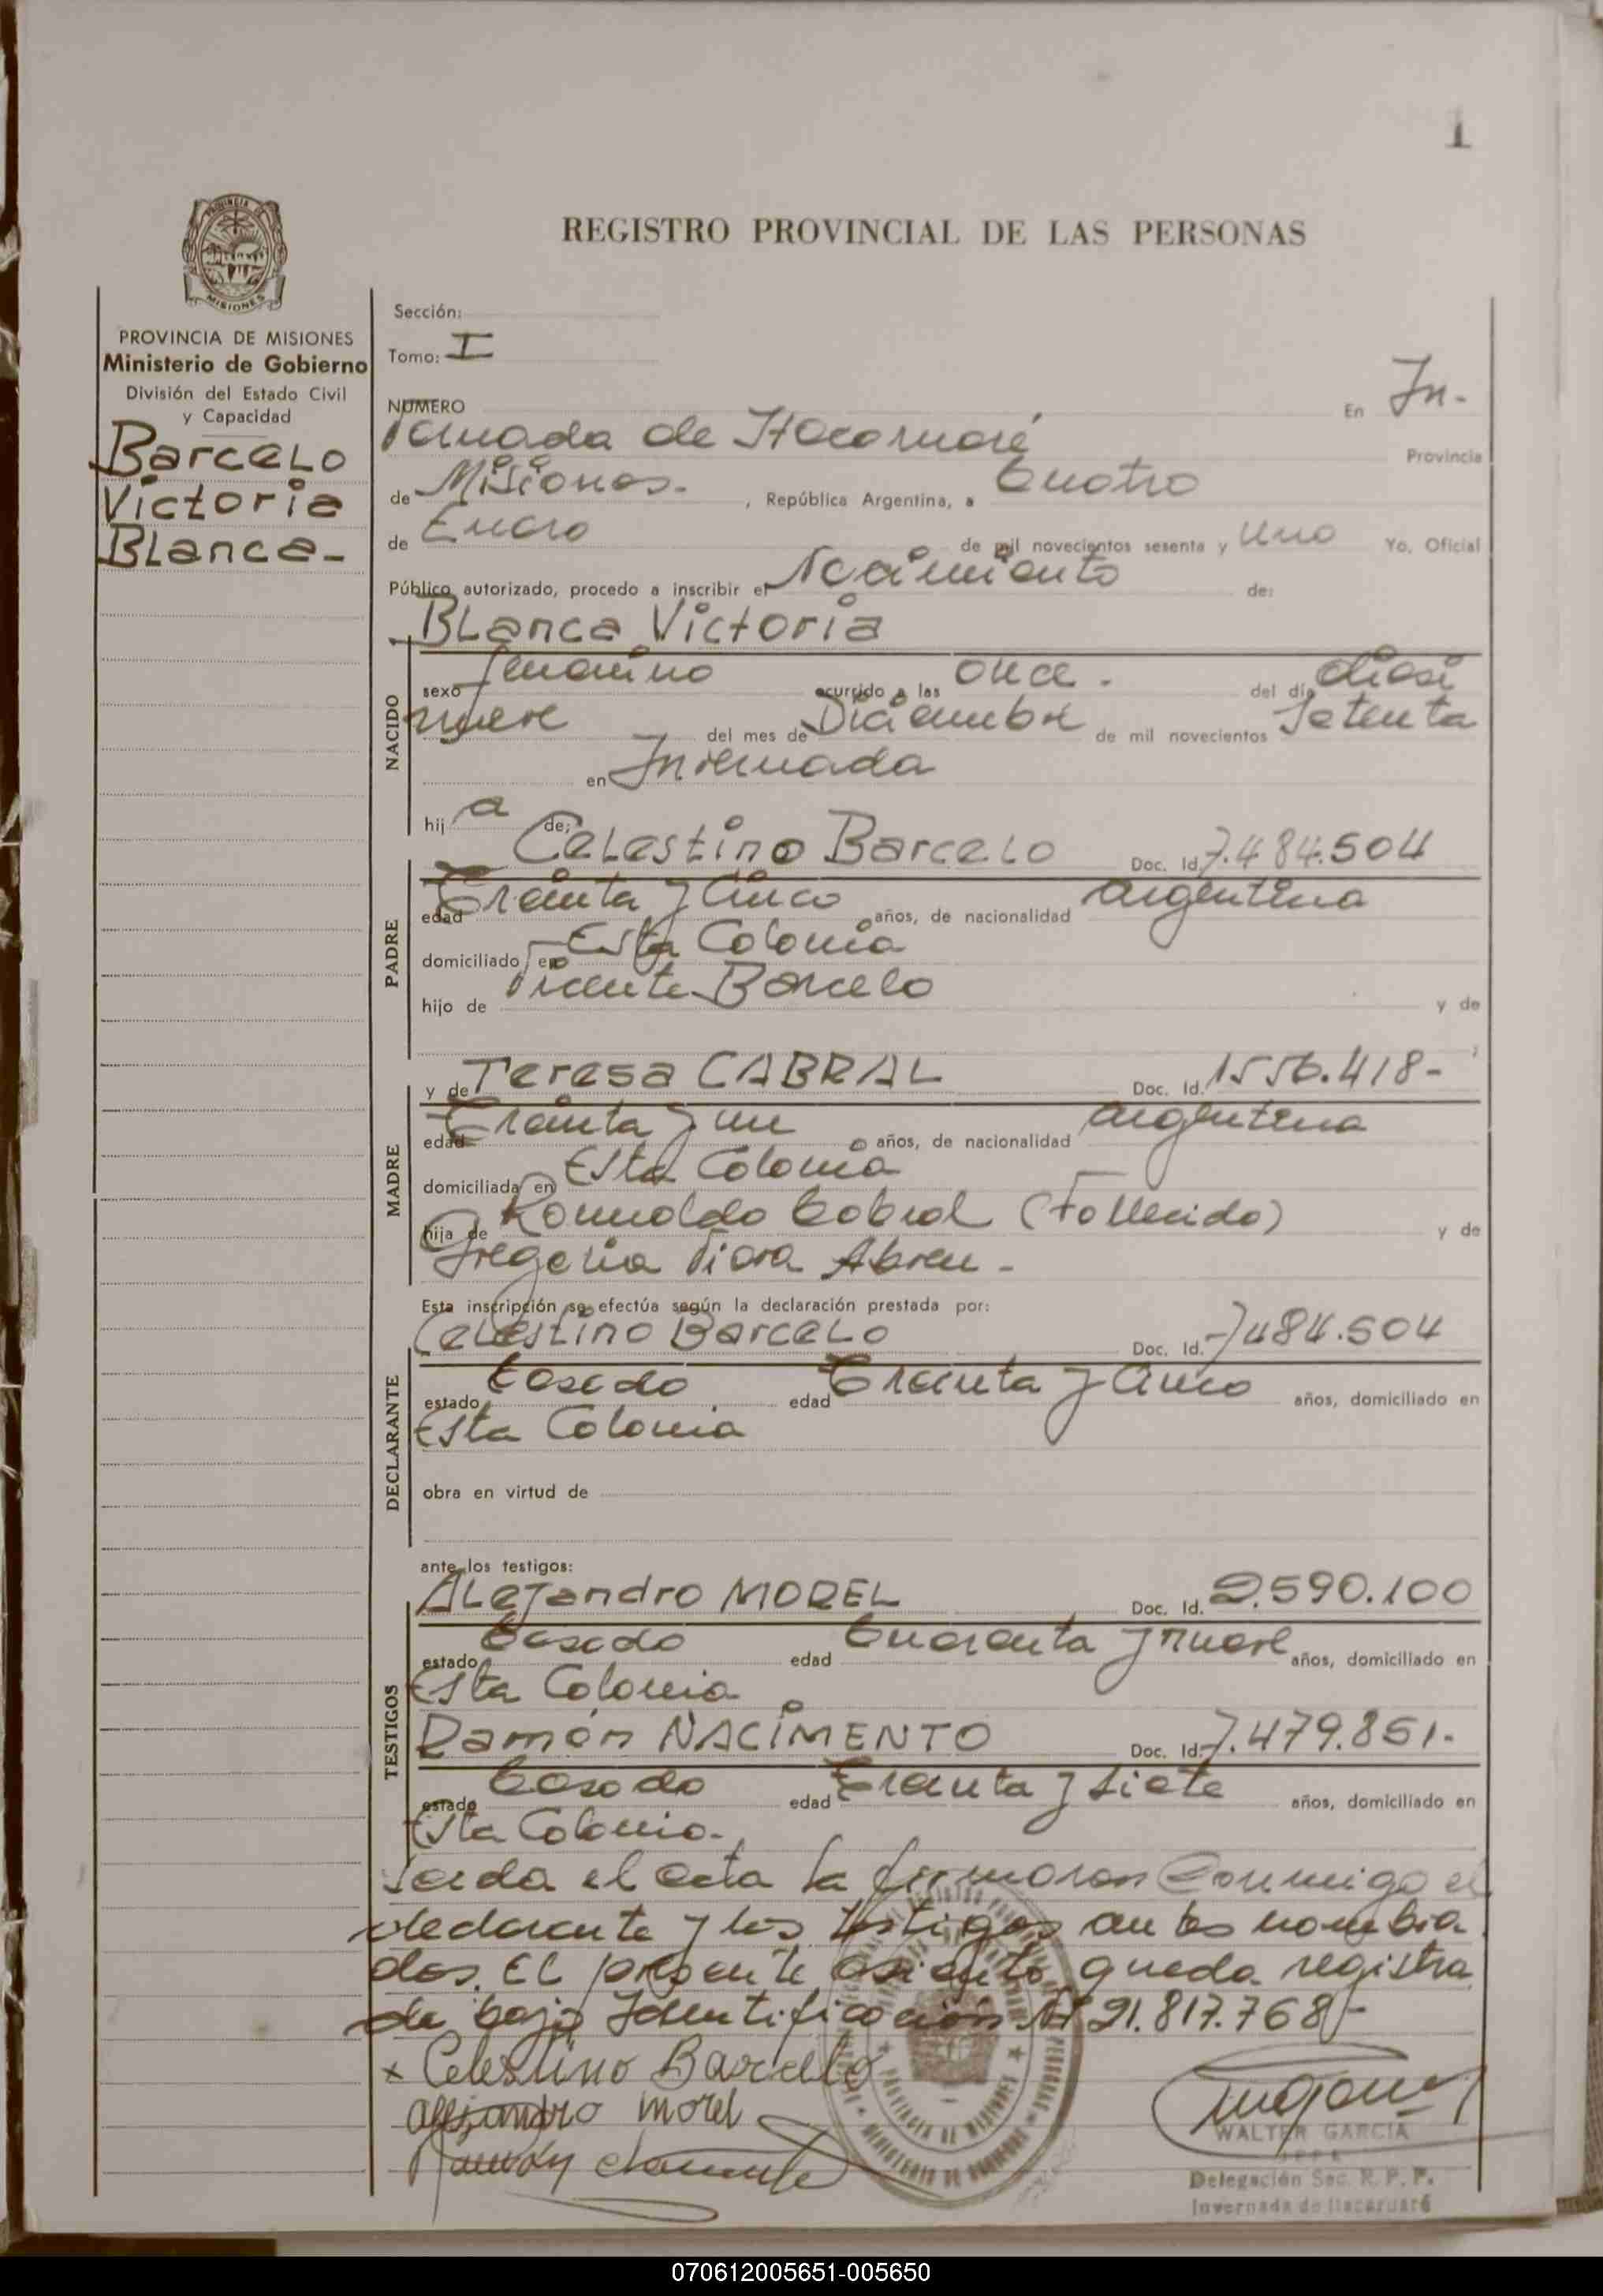 1
REGISTRO PROVINCIAL DE LAS PERSONAS
PROVINCIA DE
MISIONES
PROVINCIA DE MISIONES
Ministerio de Gobierno
División del Estado Civil
y Capacidad
Barcelo
Victoria
Blanca-
Sección:
Tomo: I
NUMERO En In-
vernada de Itacaruaré Provincia
de Misiones. , República Argentina, a Cuatro
de Enero de mil novecientos sesenta y Uno Yo, Oficial
Público autorizado, procedo a inscribir el Nacimiento de:
Blanca Victoria
NACIDO
sexo femenino ocurrido a las once. del día dieci
nueve del mes de Diciembre de mil novecientos Setenta
en Invernada
hij a de:
PADRE
Celestino Barcelo Doc. Id. 7.484.504
edad Treinta y Cinco años, de nacionalidad argentina
domiciliado en Esta Colonia
hijo de Vicente Barcelo y de
MADRE
y de Teresa CABRAL Doc. Id. 1556.418-
edad Treinta y un años, de nacionalidad argentina
domiciliada en Esta Colonia
hija de Romualdo Cabral (Fallecido) y de
Gregoria Abreu-
Esta inscripción se efectúa según la declaración prestada por:
DECLARANTE
Celestino Barcelo Doc. Id. 7484.504
estado Casado edad Treinta y Cinco años, domiciliado en
Esta Colonia
obra en virtud de
ante los testigos:
TESTIGOS
Alejandro MOREL Doc. Id. 2.590.100
estado Casado edad Cuarenta y nueve años, domiciliado en
Esta Colonia
Ramón NACIMENTO Doc. Id. 7.479.851-
estado Casado edad Treinta y Siete años, domiciliado en
Esta Colonia.
Leida el acta la firmaron Conmigo el
declarante y los testigos antes nombra
dos. El presente asiento queda registra
do bajo Identificación Nº 21.817.768-
x Celestino Barcelo
alejandro morel
Ramón
WALTER GARCIA
Delegación Sec. R. P. P.
Invernada de Itacaruaré
PROVINCIA DE MISIONES
MINISTERIO DE GOBIERNO
070612005651-005650